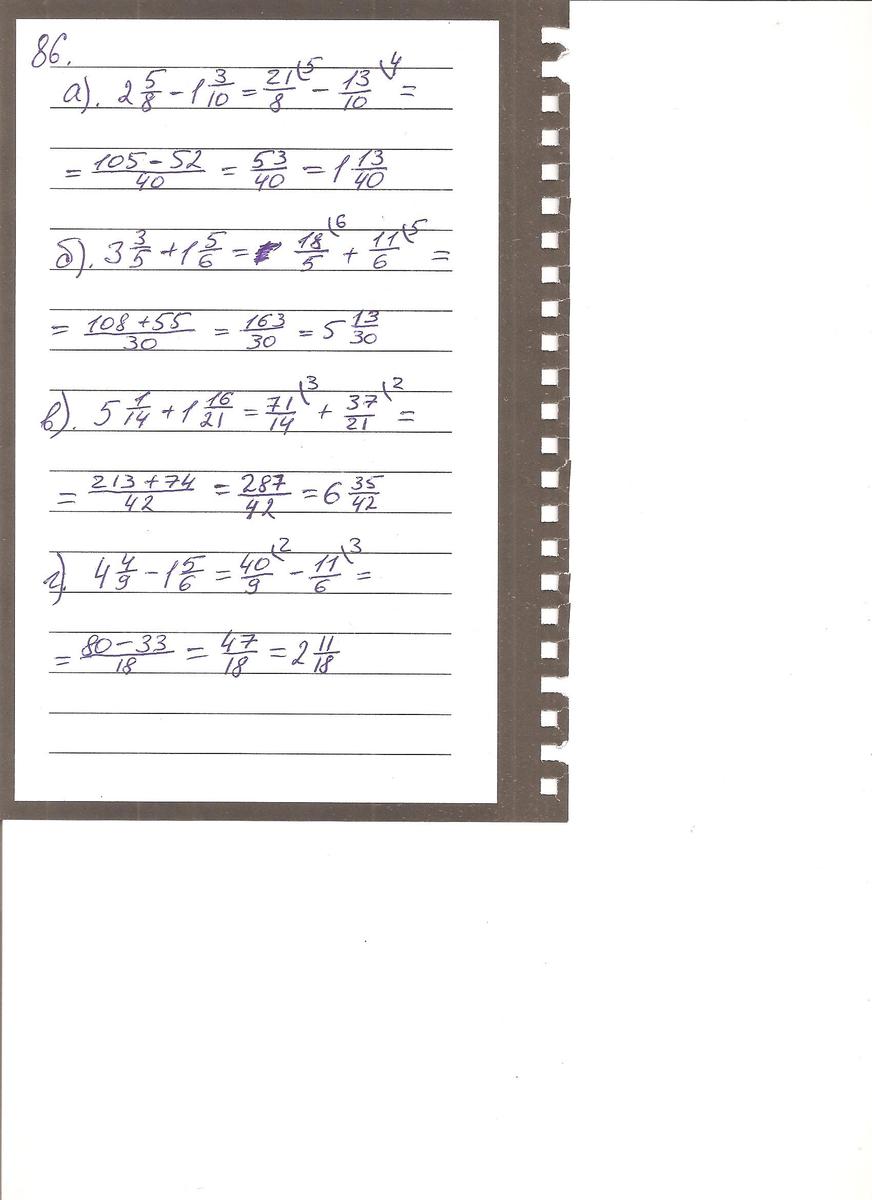 86.
а). 2 5/8 - 1 3/10 = 21/8 \5 - 13/10 \4 =
= 105 - 52/40 = 53/40 = 1 13/40
б). 3 3/5 + 1 5/6 = 18/5 \6 + 11/6 \5 =
= 108 + 55/30 = 163/30 = 5 13/30
в). 5 1/14 + 1 16/21 = 71/14 \3 + 37/21 \2 =
= 213 + 74/42 = 287/42 = 6 35/42
г). 4 4/9 - 1 5/6 = 40/9 \2 - 11/6 \3 =
= 80 - 33/18 = 47/18 = 2 11/18